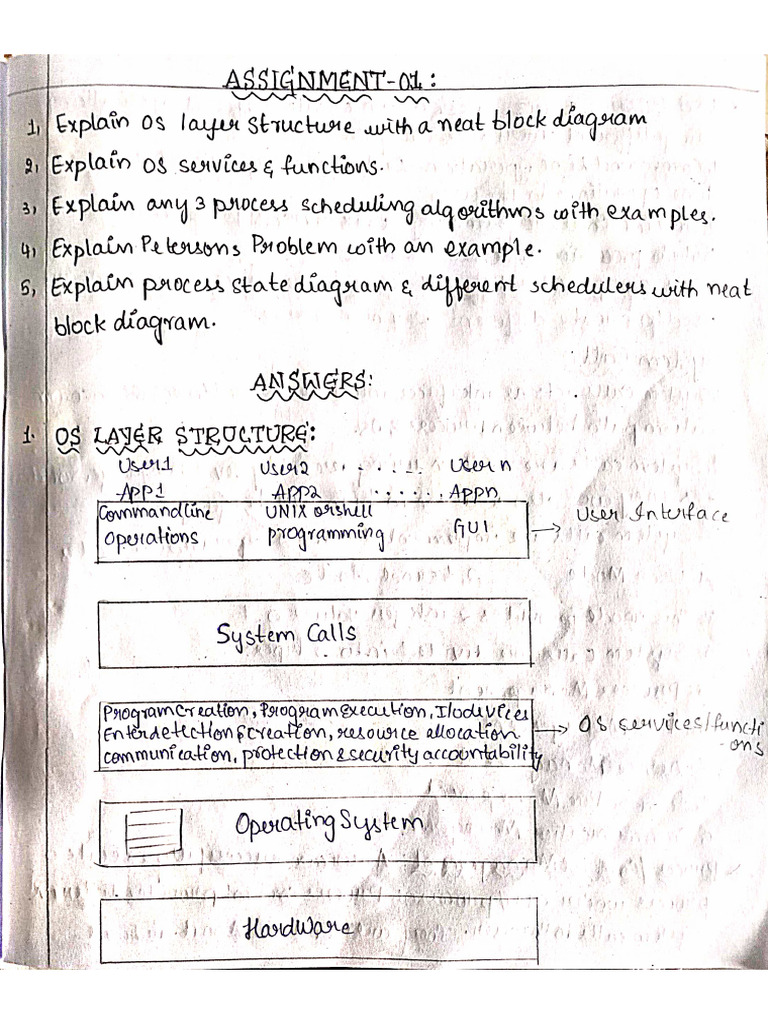 ASSIGNMENT-01:
1, Explain OS layer structure with a neat block diagram
2, Explain OS services & functions.
3, Explain any 3 process scheduling algorithms with examples.
4, Explain Petersons Problem with an example.
5, Explain process state diagram & different schedulers with neat
block diagram.
ANSWERS:
1. OS LAYER STRUCTURE:
User1 User2 ...... User n
APP1 APP2 ...... APPn
Commandline UNIX orshell GUI
Operations programming
→ User Interface
System Calls
Program Creation, Program execution, I/o devices
Enterdetection & creation, resource allocation
communication, protection & security accountability
→ OS services/functi
-ons
Operating System
Hardware